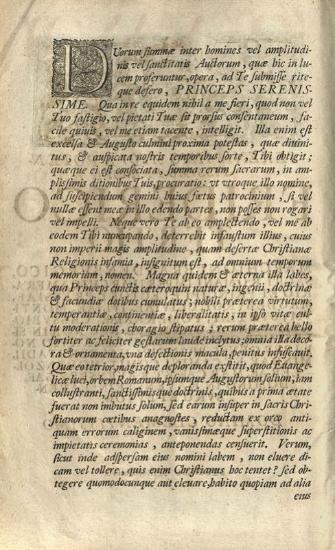 DUorum summæ inter homines vel amplitudi-
nis vel sanctitatis Auctorum, quæ hic in lu-
cem proferuntur, opera, ad Te submisse rite-
que defero, PRINCEPS SERENIS-
SIME. Qua in re equidem nihil a me fieri, quod non vel
Tuo fastigio, vel pietati Tuæ sit prorsus consentaneum, fa-
cile quivis, vel me etiam tacente, intelligit. Illa enim est
excelsa & Augusto culmini proxima potestas, quæ divini-
tus, & auspicato nostris temporibus sorte, Tibi obtigit;
quæque ei est consociata, summa rerum sacrarum, in am-
plissimis ditionibus Tuis, procuratio: ut utroque illo nomine,
ad suscipiendum gemini hujus fœtus patrocinium, si vel
nullæ essent meæ in illo edendo partes, non posses non rogari
vel impelli. Neque vero Te ab eo amplectendo, vel me ab
eodem Tibi nuncupando, deterrebit infaustum illius, cujus
non imperii magis amplitudine, quam desertæ Christianæ
Religionis infamia, insignitum est, ad omnium temporum
memoriam, nomen. Magna quidem & æterna illa labes,
qua Princeps cunctis cæteroquin naturæ, ingenii, doctrinæ
& facundiæ dotibus cumulatus; nobili præterea virtutum,
temperantiæ, continentiæ, liberalitatis, in ipso vitæ cul-
tu moderationis, choragio stipatus; rerum præterea bello
fortiter ac feliciter gestarum laude inclytus; omnia illa deco-
ra & ornamenta, una defectionis macula, penitus infuscavit.
Quæ eo tetrior, magisque deploranda exstitit, quod Euange-
licæ luci, orbem Romanum, ipsumque Augustorum solium, jam
collustranti, sanctissimisque doctrinis, quibus a prima ætate
fuerat non imbutus solum, sed earum insuper in sacris Chri-
stianorum cœtibus anagnostes, reductam ex orco anti-
quam errorum caliginem, vanissimæque superstitionis ac
impietatis ceremonias, anteponendas censuerit. Verum,
sicut inde adspersam ejus nomini labem, non eluere di-
cam vel tollere, quis enim Christianus hoc tentet? sed ob-
tegere quomodocunque aut elevare, habito quopiam ad alia
ejus